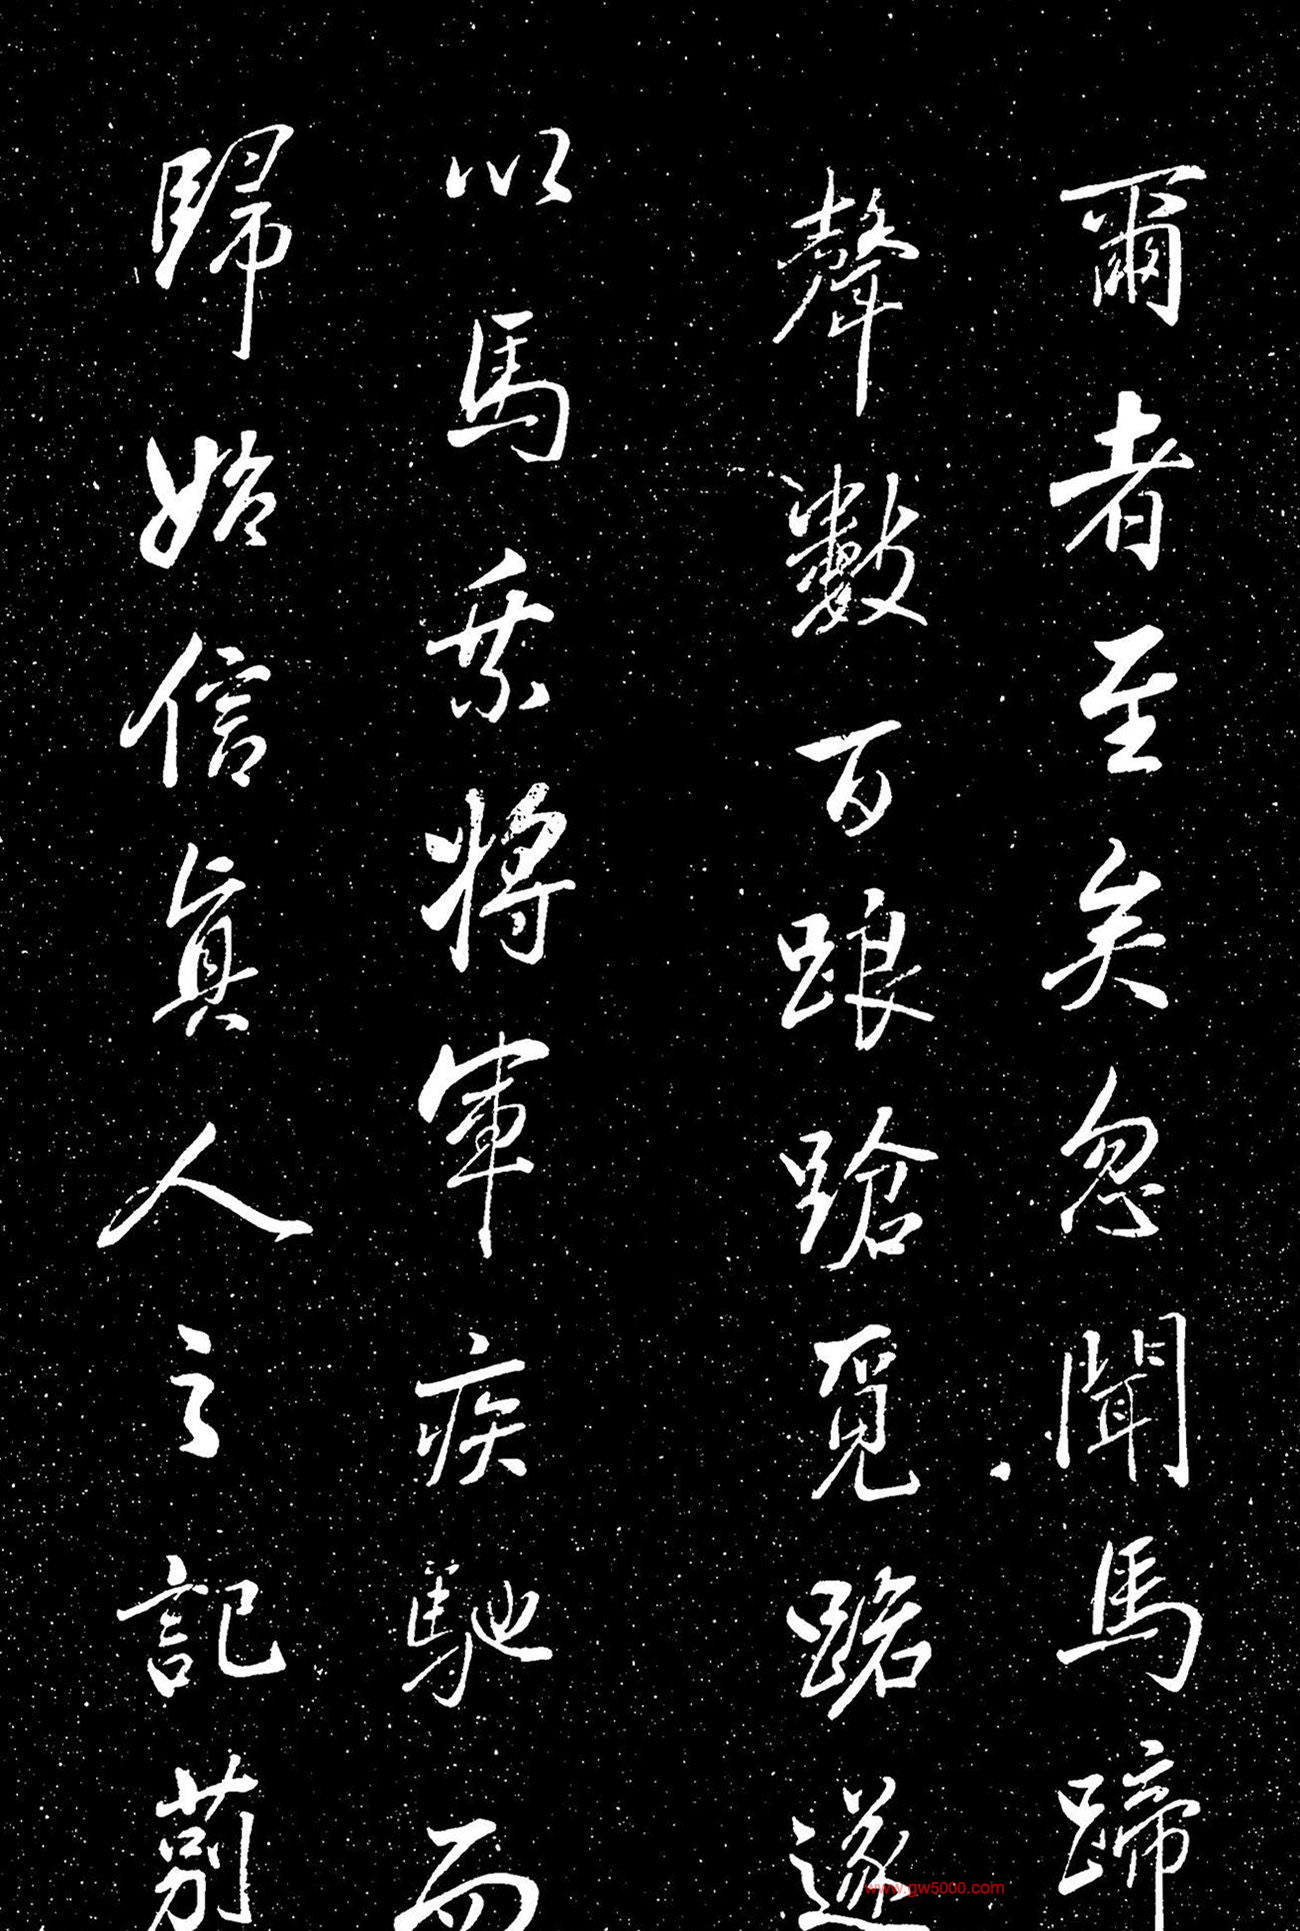 爾者至矣忽聞馬蹄
聲數百踉蹌覓路遂
以馬乘將軍疾馳而
歸始信真人之記莂
www.gw5000.com